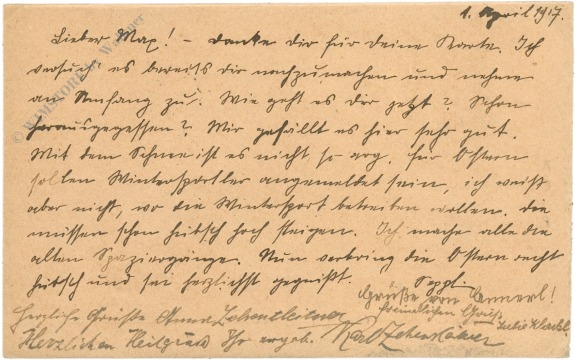 1. April 1917.
Lieber Max! – Danke dir für deine Karte. Ich
versuch es bereits dir nachzumachen und nehme
an Umfang zu. Wie geht es dir jetzt? Schon
herausgegessen? Wir gefällt es hier sehr gut.
Mit dem Schnee ist es nicht so arg, für Ostern
sollen Wintersportler angemeldet sein, ich weiß
aber nicht, wo die Wintersport betreiben wollen. Die
müssen schon hübsch hoch steigen. Ich mache alle die
alten Spaziergänge. Nun verbring die Ostern recht
hübsch und sei herzlichst gegrüßt. Seppl.
Grüße von Annerl!
Herzliche Grüße Anna Zehentleitner
Herzlichen Heilgruß Ihr ergeb. Karl